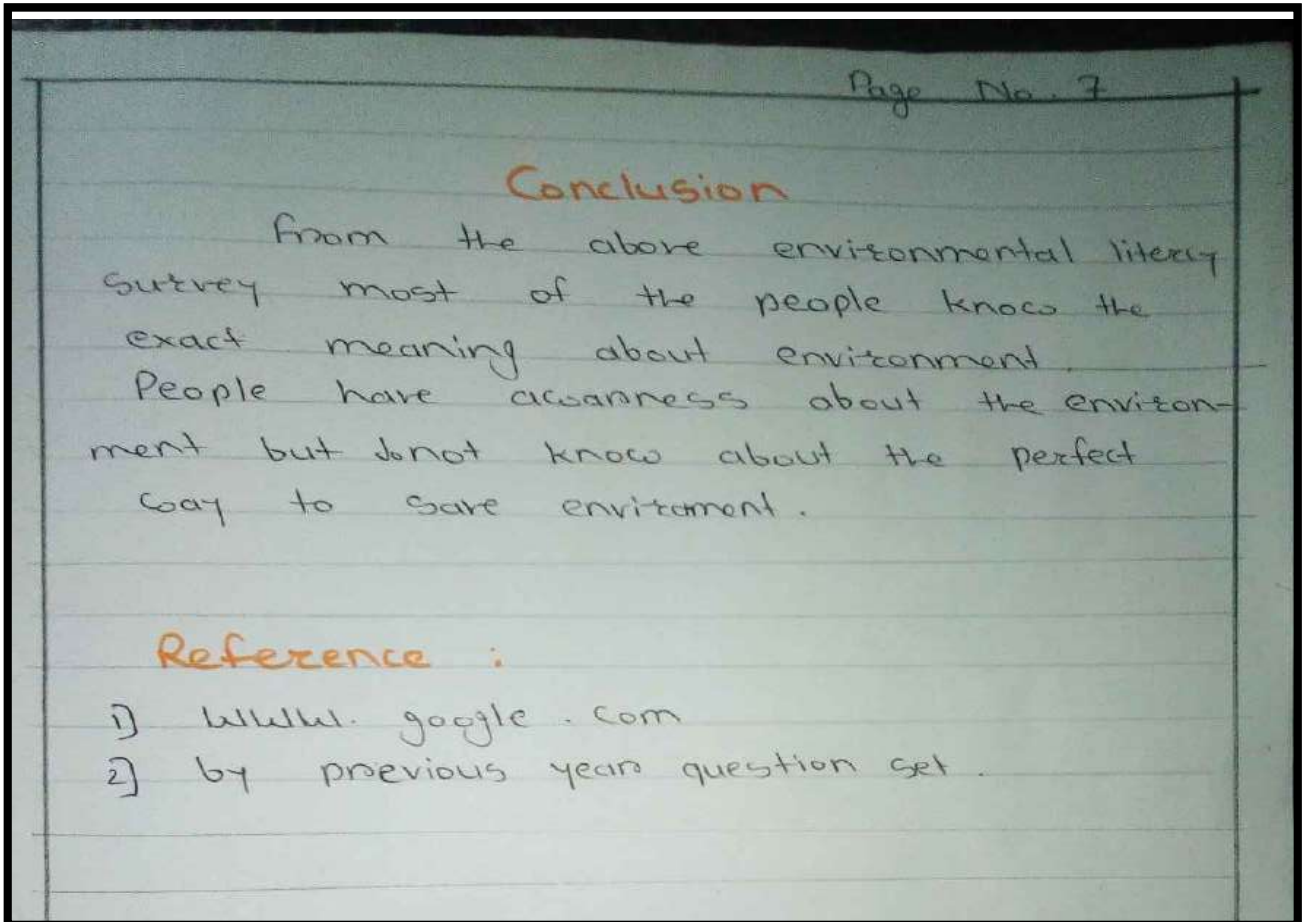 Page No. 7
Conclusion
From the above environmental litercy
survey most of the people know the
exact meaning about environment.
People have awarness about the environ-
ment but donot know about the perfect
way to save enviroment.
Reference :
1] www. google . com
2] by previous year question set .